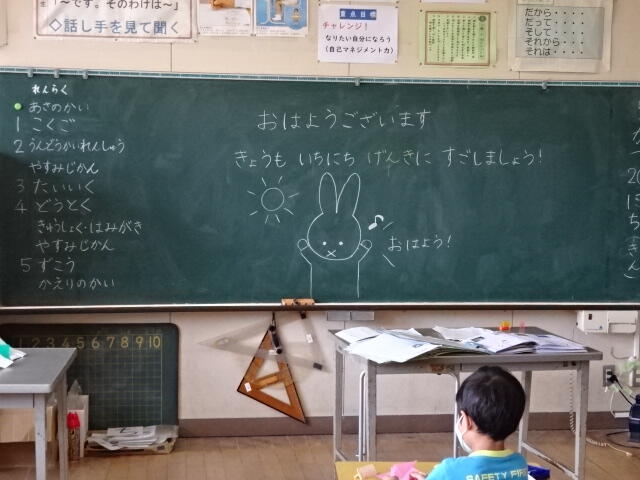 「～です。そのわけは～」
◇話し手を見て聞く
重点目標
チャレンジ！
なりたい自分になろう
(自己マネジメント力)
だから・・・・
だって・・・・
そして・・・・
それから・・・・
それは・・・・
れんらく
あさのかい
1 こくご
2 うんどうかいれんしゅう
やすみじかん
3 たいいく
4 どうとく
きゅうしょく・はみがき
やすみじかん
5 ずこう
かえりのかい
おはようございます
きょうも いちにち げんきに すごしましょう！
おはよう！
20
にち
きん)
1 2 3 4 5 6 7 8 9 10
SAFETY FIRST